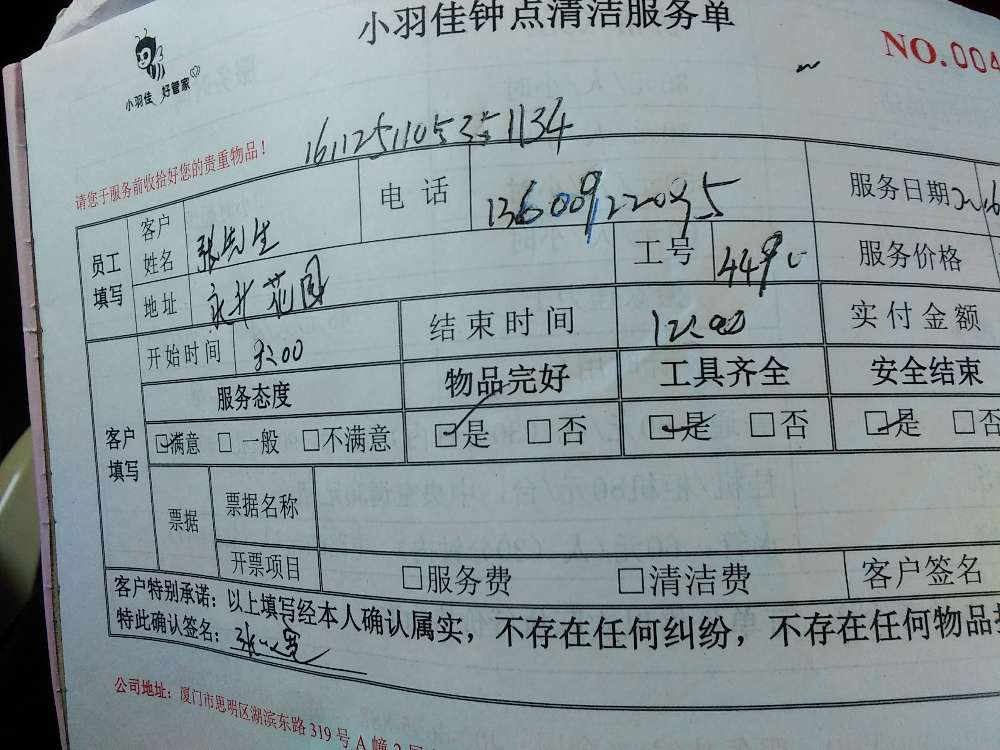 小羽佳钟点清洁服务单
NO.004
小羽佳 好管家
请您于服务前收拾好您的贵重物品！
员工填写 客户姓名 张先生 电话 13600922095 服务日期 2016
地址 永升花园 工号 4490 服务价格
客户填写 开始时间 8:00 结束时间 12:00 实付金额
服务态度 物品完好 工具齐全 安全结束
☑满意 □一般 □不满意 ☑是 □否 ☑是 □否 ☑是 □否
票据 票据名称
开票项目 □服务费 □清洁费 客户签名
客户特别承诺：以上填写经本人确认属实，不存在任何纠纷，不存在任何物品
特此确认签名：
公司地址：厦门市思明区湖滨东路319号A幢2